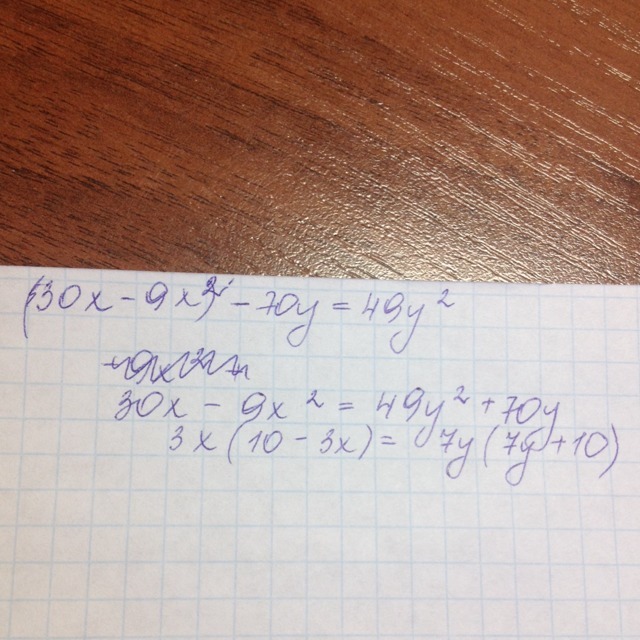 (30x - 9x²) - 70y = 49y²
30x - 9x² = 49y² + 70y
3x (10 - 3x) = 7y (7y + 10)